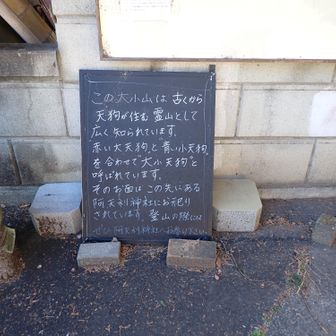 この大小山は古くから
天狗が住む霊山として
広く知られています。
赤い大天狗と青い小天狗
を合わせて"大小天狗"と
呼ばれています。
そのお面はこの先にある
阿夫利神社にお祀り
されています。登山の際には
ぜひ阿夫利神社へお参り下さい。